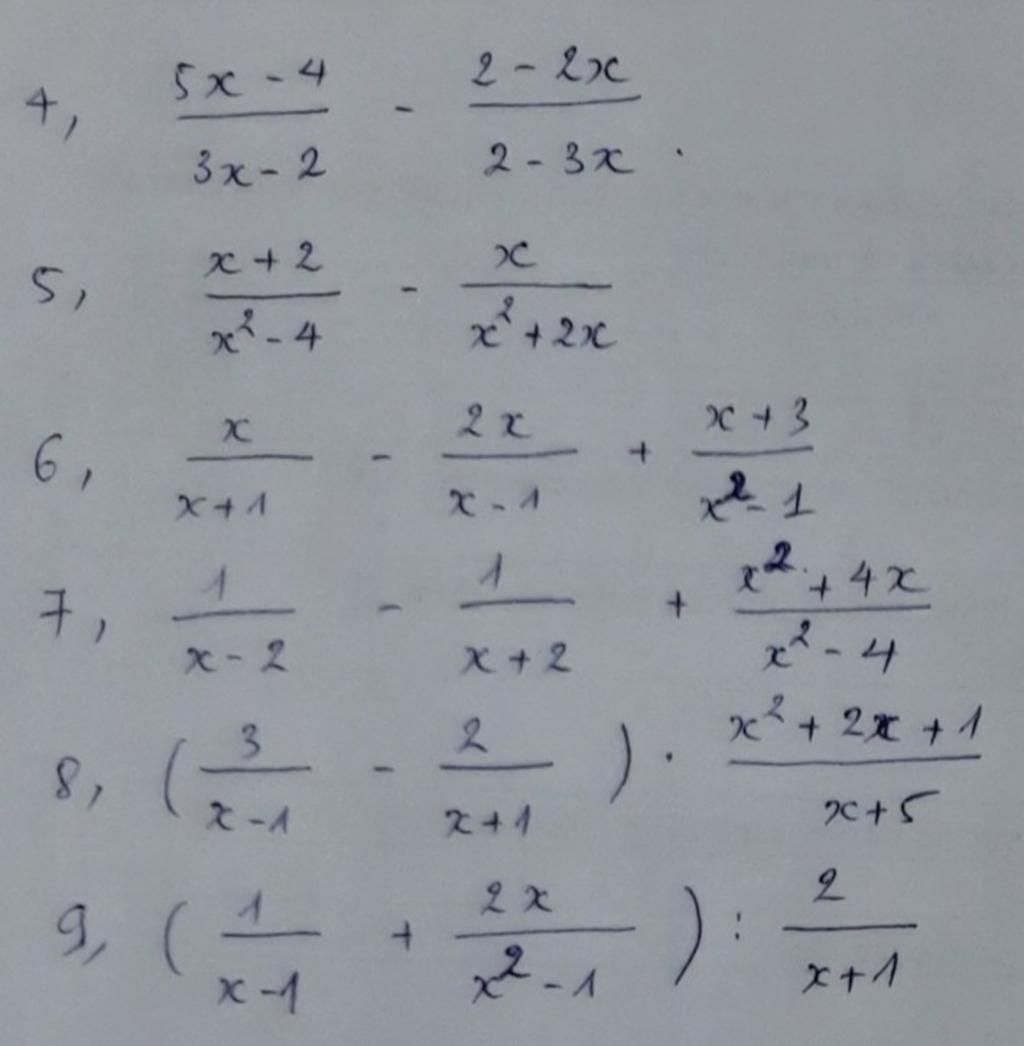 4, (5x - 4)/(3x - 2) - (2 - 2x)/(2 - 3x) .
5, (x + 2)/(x² - 4) - x/(x² + 2x)
6, x/(x + 1) - 2x/(x - 1) + (x + 3)/(x² - 1)
7, 1/(x - 2) - 1/(x + 2) + (x² + 4x)/(x² - 4)
8, (3/(x - 1) - 2/(x + 1)) · (x² + 2x + 1)/(x + 5)
9, (1/(x - 1) + 2x/(x² - 1)) : 2/(x + 1)